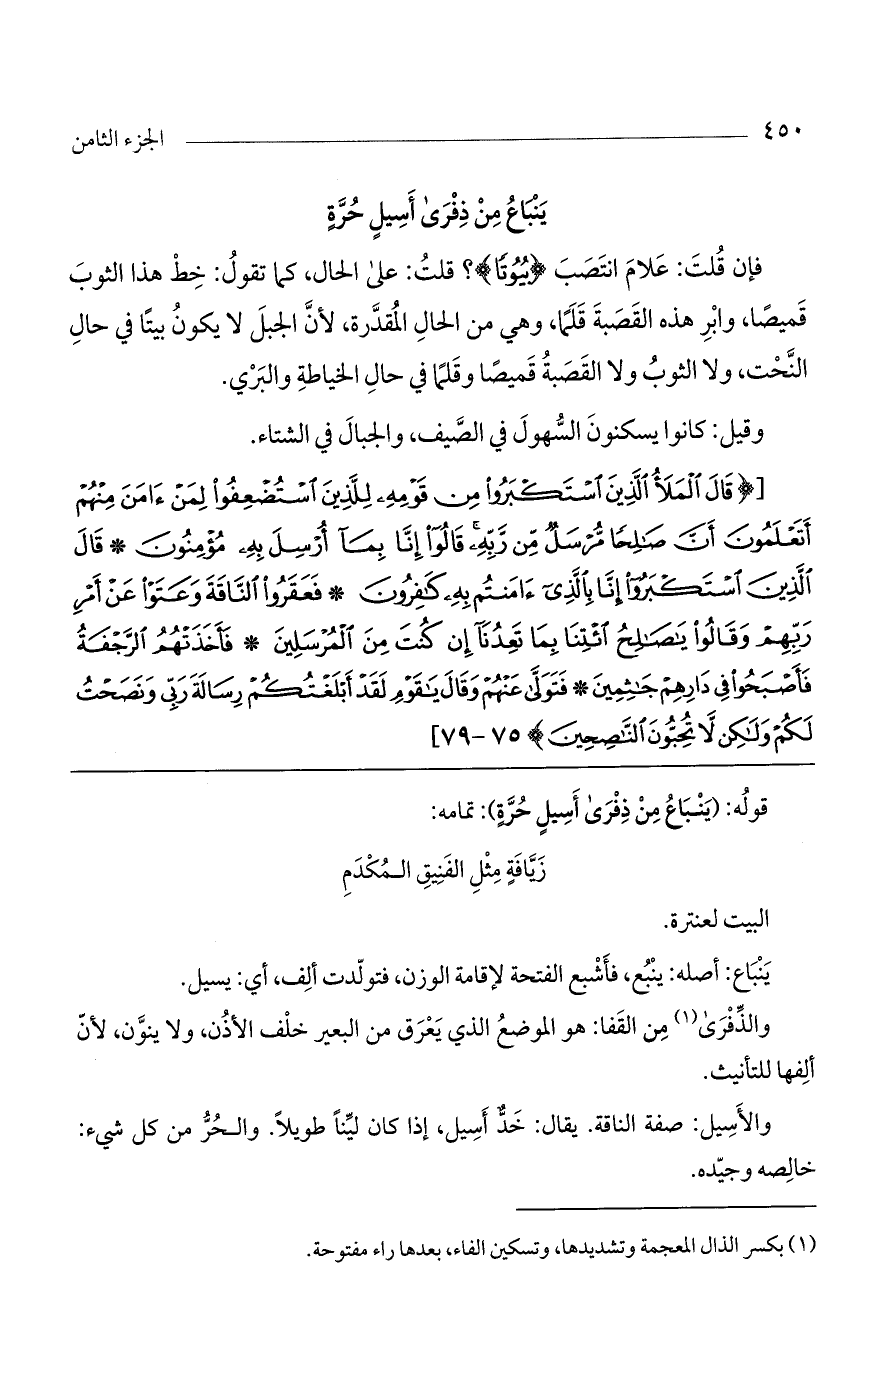 ٤٥٠ الجزء الثامن
يَنْبَاعُ مِنْ ذِفْرَىٰ أَسِيلٍ حُرَّةٍ
فإن قُلتَ: عَلامَ انتَصَبَ ﴿بُيُوتًا﴾؟ قلتُ: علىٰ الحال، كما تقولُ: خِطْ هذا الثوبَ
قَميصًا، وابْرِ هذه القَصَبةَ قَلَمًا، وهي من الحالِ المُقدَّرة، لأنَّ الجبلَ لا يكونُ بيتًا في حالِ
النَّحْت، ولا الثوبُ ولا القَصَبةُ قميصًا وقلمًا في حالِ الخياطةِ والبَرْي.
وقيل: كانوا يسكنونَ السُّهولَ في الصَّيف، والجبالَ في الشتاء.
[﴿قَالَ ٱلْمَلَأُ ٱلَّذِينَ ٱسْتَكْبَرُوا۟ مِن قَوْمِهِۦ لِلَّذِينَ ٱسْتُضْعِفُوا۟ لِمَنْ ءَامَنَ مِنْهُمْ
أَتَعْلَمُونَ أَنَّ صَـٰلِحًا مُّرْسَلٌ مِّن رَّبِّهِۦۚ قَالُوٓا۟ إِنَّا بِمَآ أُرْسِلَ بِهِۦ مُؤْمِنُونَ * قَالَ
ٱلَّذِينَ ٱسْتَكْبَرُوٓا۟ إِنَّا بِٱلَّذِىٓ ءَامَنتُم بِهِۦ كَـٰفِرُونَ * فَعَقَرُوا۟ ٱلنَّاقَةَ وَعَتَوْا۟ عَنْ أَمْرِ
رَبِّهِمْ وَقَالُوا۟ يَـٰصَـٰلِحُ ٱئْتِنَا بِمَا تَعِدُنَآ إِن كُنتَ مِنَ ٱلْمُرْسَلِينَ * فَأَخَذَتْهُمُ ٱلرَّجْفَةُ
فَأَصْبَحُوا۟ فِى دَارِهِمْ جَـٰثِمِينَ * فَتَوَلَّىٰ عَنْهُمْ وَقَالَ يَـٰقَوْمِ لَقَدْ أَبْلَغْتُكُمْ رِسَالَةَ رَبِّى وَنَصَحْتُ
لَكُمْ وَلَـٰكِن لَّا تُحِبُّونَ ٱلنَّـٰصِحِينَ﴾ ٧٥ -٧٩]
قولُه: (يَنْبَاعُ مِنْ ذِفْرَىٰ أَسِيلٍ حُرَّةٍ): تمامه:
زَيَّافَةٍ مِثْلِ الفَنِيقِ الـمُكْدَمِ
البيت لعنترة.
يَنْبَاع: أصله: ينْبُع، فأَشْبع الفتحة لإقامة الوزن، فتولّدت ألِف، أي: يسيل.
والذِّفْرَىٰ(١) مِن القَفا: هو الموضعُ الذي يَعْرَق من البعير خلْف الأذُن، ولا ينوَّن، لأنّ
ألِفها للتأنيث.
والأَسِيل: صفة الناقة. يقال: خَدٌّ أَسِيل، إذا كان ليِّناً طويلاً. والـحُرُّ من كل شيء:
خالِصه وجيّده.
(١) بكسر الذال المعجمة وتشديدها، وتسكين الفاء، بعدها راء مفتوحة.